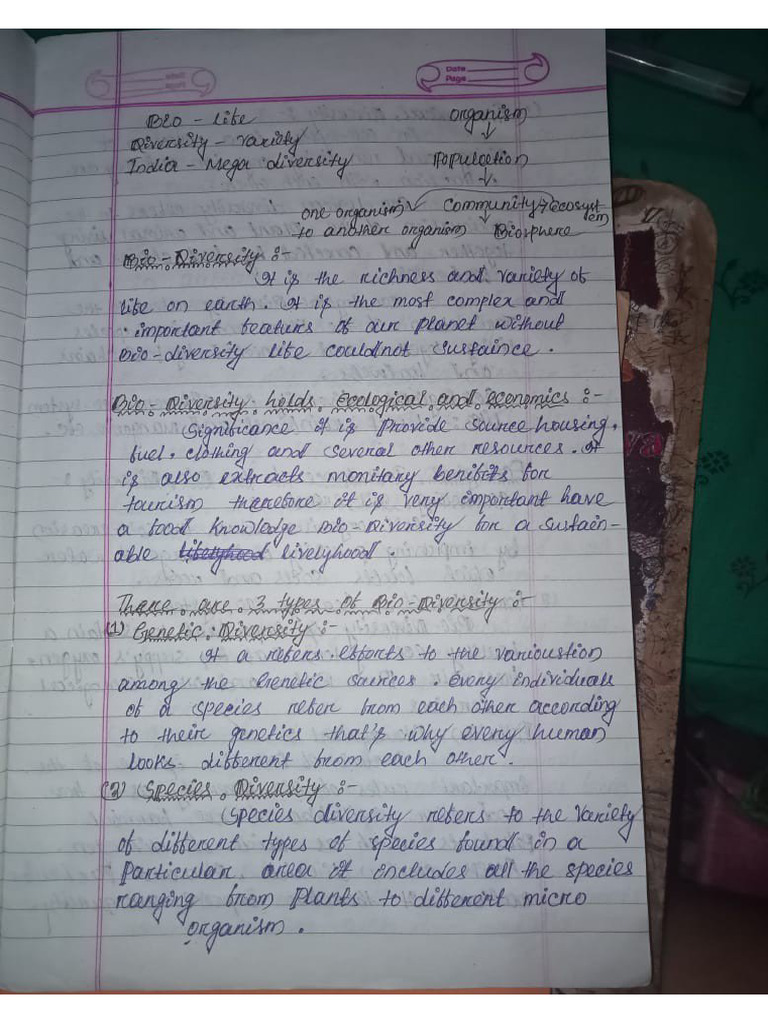 Date
Page
Bio - Life
Diversity - Variety
India - Mega diversity
organism
↓
Population
↓
one organism ← community → ecosyst
em
to another organism
↓
Biosphere
Bio - Diversity :-
It is the richness and variety of
life on earth. It is the most complex and
important features of our planet without
Bio-diversity life couldnot sustaince.
Bio - Diversity holds ecological and economics :-
Significance it is Provide source housing,
fuel, clothing and several other resources. It
is also extracts monitary benifits for
tourism therefore it is very important have
a food knowledge Bio-Diversity for a sustain-
able livelyhood.
There are 3 types of Bio-Diversity :-
(1) Genetic Diversity :-
It a refers efforts to the varioustion
among the Genetic sources every individuals
of a species refer from each other according
to their genetics that's why every human
looks different from each other.
(2) Species Diversity :-
Species diversity refers to the variety
of different types of species found in a
Particular area it includes all the species
ranging from Plants to different micro
organism.